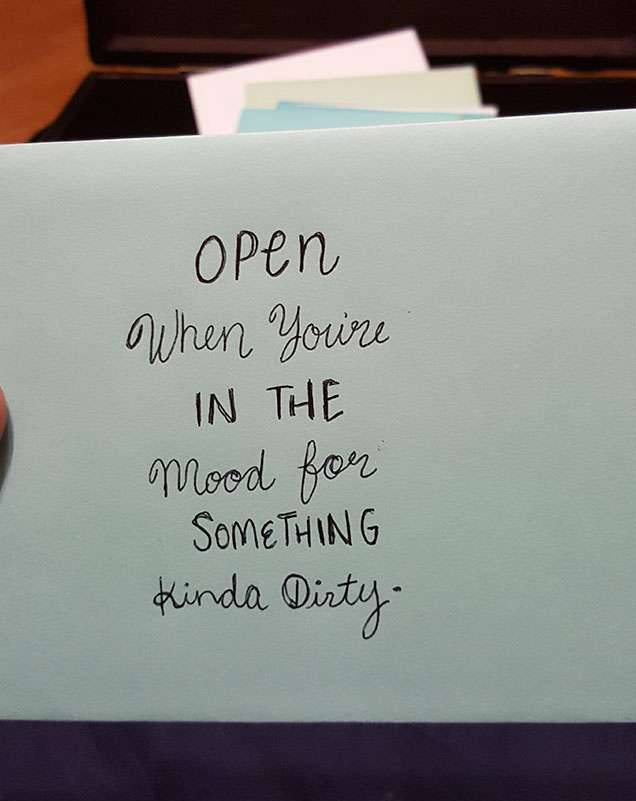 OPEN
When You're
IN THE
Mood for
SOMETHING
Kinda Dirty.